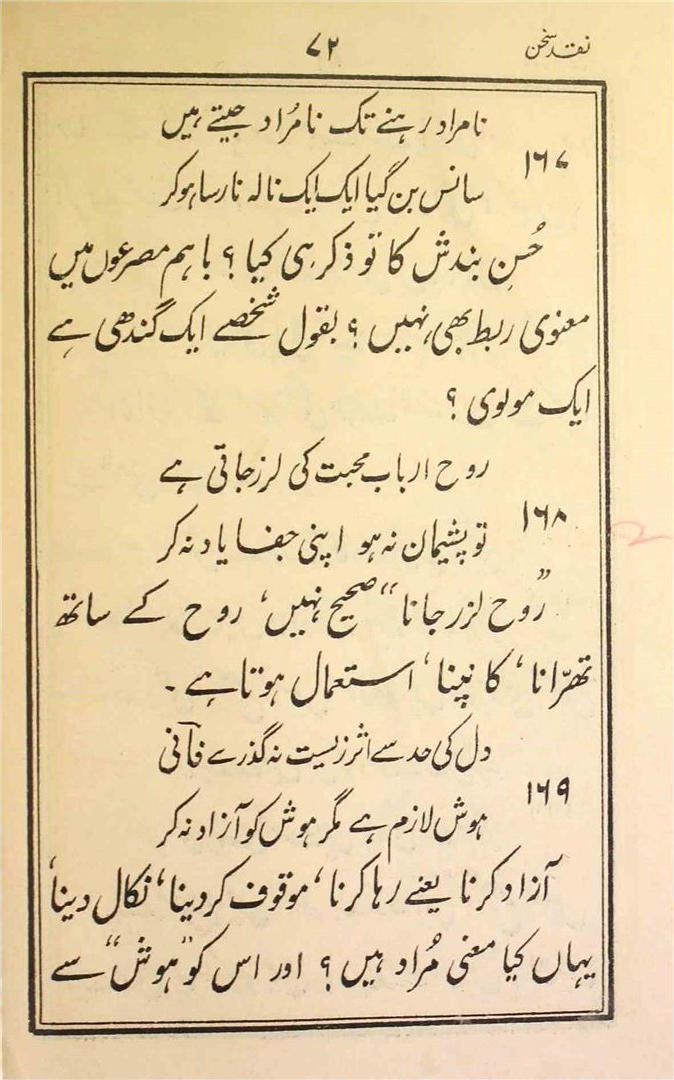 نقد سخن
۷۲
نامراد رہنے تک نامُراد جیتے ہیں
۱۶۷
سانس بن گیا ایک ایک نالہ نارسا ہو کر
حُسنِ بندش کا تو ذکر ہی کیا؟ باہم مصرعوں میں
معنوی ربط بھی نہیں؟ بقول شخصے ایک گندھی ہے
ایک مولوی؟
روح ارباب محبت کی لرز جاتی ہے
۱۶۸
تو پشیمان نہ ہو اپنی جفا یاد نہ کر
”رُوح لزر جانا“ صحیح نہیں، روح کے ساتھ
تھرّانا، کانپنا، استعمال ہوتا ہے۔
دل کی حد سے اثر زیست نہ گذرے فانی
۱۶۹
ہوش لازم ہے مگر ہوش کو آزاد نہ کر
آزاد کرنا یعنے رہا کرنا، موقوف کر دینا، نکال دینا،
یہاں کیا معنی مُراد ہیں؟ اور اس کو ”ہوش“ سے